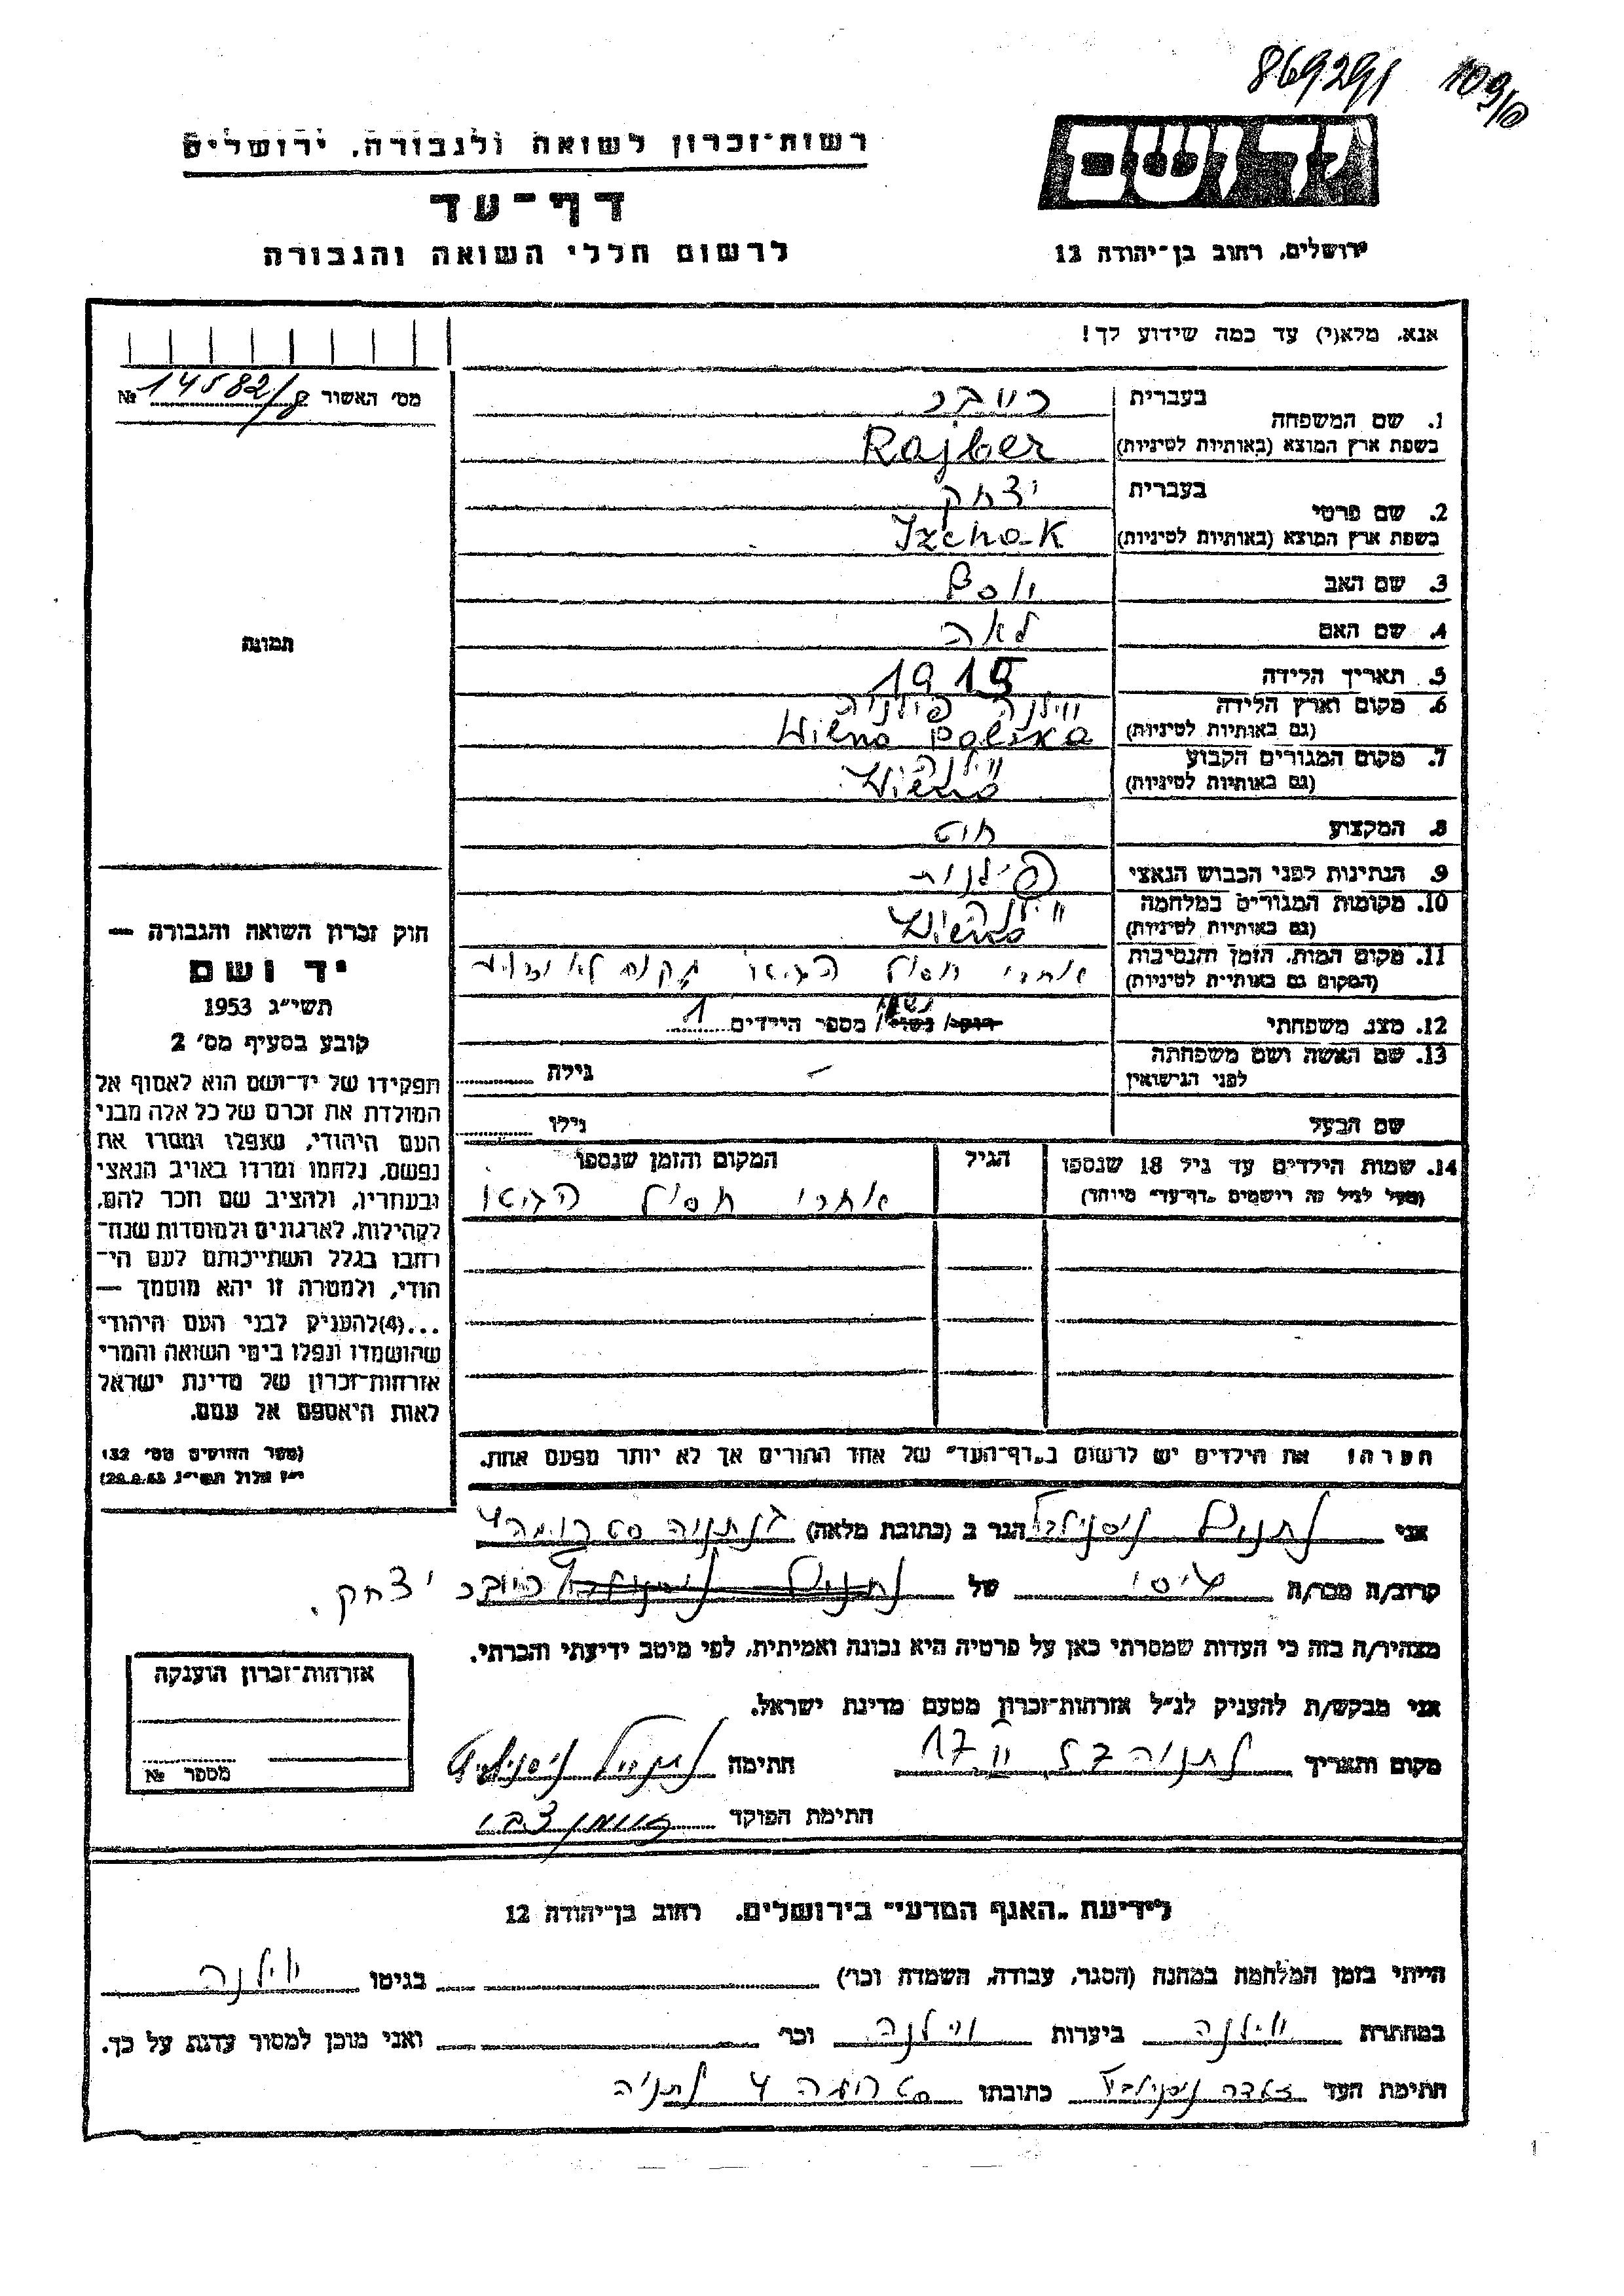 869291 109/10
רשות־זכרון לשואה ולגבורה, ירושלים
ידושם
דף־עד
לרשום חללי השואה והגבורה
ירושלים, רחוב בן־יהודה 12
אנא, מלא(י) עד כמה שידוע לך!
מס׳ האשור 14582/8 №
תמונה
1. שם המשפחה
בעברית רייבר
בשפת ארץ המוצא (באותיות לטיניות) Rajber
2. שם פרטי
בעברית יצחק
בשפת ארץ המוצא (באותיות לטיניות) Izchak
3. שם האב יוסף
4. שם האם לאה
5. תאריך הלידה 1915
6. מקום וארץ הלידה ווילנה פולניה
(גם באותיות לטיניות) Wilno Polska
7. מקום המגורים הקבוע ווילנה
(גם באותיות לטיניות) Wilno
8. המקצוע חיט
9. הנתינות לפני הכבוש הנאצי פולנית
10. מקומות המגורים במלחמה ווילנה
(גם באותיות לטיניות) Wilno
11. מקום המות, הזמן והנסיבות אחרי חסול הגיטו
(המקום גם באותיות לטיניות)
12. מצב משפחתי רווק/ נשוי/ נשוי מספר הילדים 1
13. שם האשה ושם משפחתה
לפני הנישואין — גילה
שם הבעל גילו
14. שמות הילדים עד גיל 18 שנספו הגיל המקום והזמן שנספו
(מעל לגיל זה רושמים „דף־עד״ מיוחד) אחרי חסול הגיטו
הערה: את הילדים יש לרשום ב„דף־העד״ של אחד ההורים אך לא יותר מפעם אחת.
חוק זכרון השואה והגבורה —
יד ושם
תשי״ג 1953
קובע בסעיף מס׳ 2
תפקידו של יד־ושם הוא לאסוף אל
המולדת את זכרם של כל אלה מבני
העם היהודי, שנפלו ומסרו את
נפשם, נלחמו ומרדו באויב הנאצי
ובעוזריו, ולהציב שם וזכר להם,
לקהילות, לארגונים ולמוסדות שנח־
רבו בגלל השתייכותם לעם הי־
הודי, ולמטרה זו יהא מוסמך —
...(4)להעניק לבני העם היהודי
שהושמדו ונפלו בימי השואה והמרי
אזרחות־זכרון של מדינת ישראל
לאות היאספם אל עמם.
(ספר החוקים מס׳ 132
י״ז אלול תשי״ג 28.8.53)
אני הגר ב (כתובת מלאה)
קרוב/ה מכר/ה של רייבר יצחק.
מצהיר/ה בזה כי העדות שמסרתי כאן על פרטיה היא נכונה ואמיתית, לפי מיטב ידיעתי והכרתי.
אני מבקש/ת להעניק לנ״ל אזרחות־זכרון מטעם מדינת ישראל.
מקום ותאריך נתניה 17 חתימה
חתימת הפוקד
אזרחות־זכרון הוענקה
מספר №
לידיעת „האגף המדעי״ בירושלים, רחוב בן־יהודה 12
הייתי בזמן המלחמה במחנה (הסגר, עבודה, השמדה וכר׳) בגיטו ווילנה
במחתרת ווילנה ביערות ווילנה וכר׳ ואני מוכן למסור עדות על כך.
חתימת העד כתובתו 4 נתניה
1